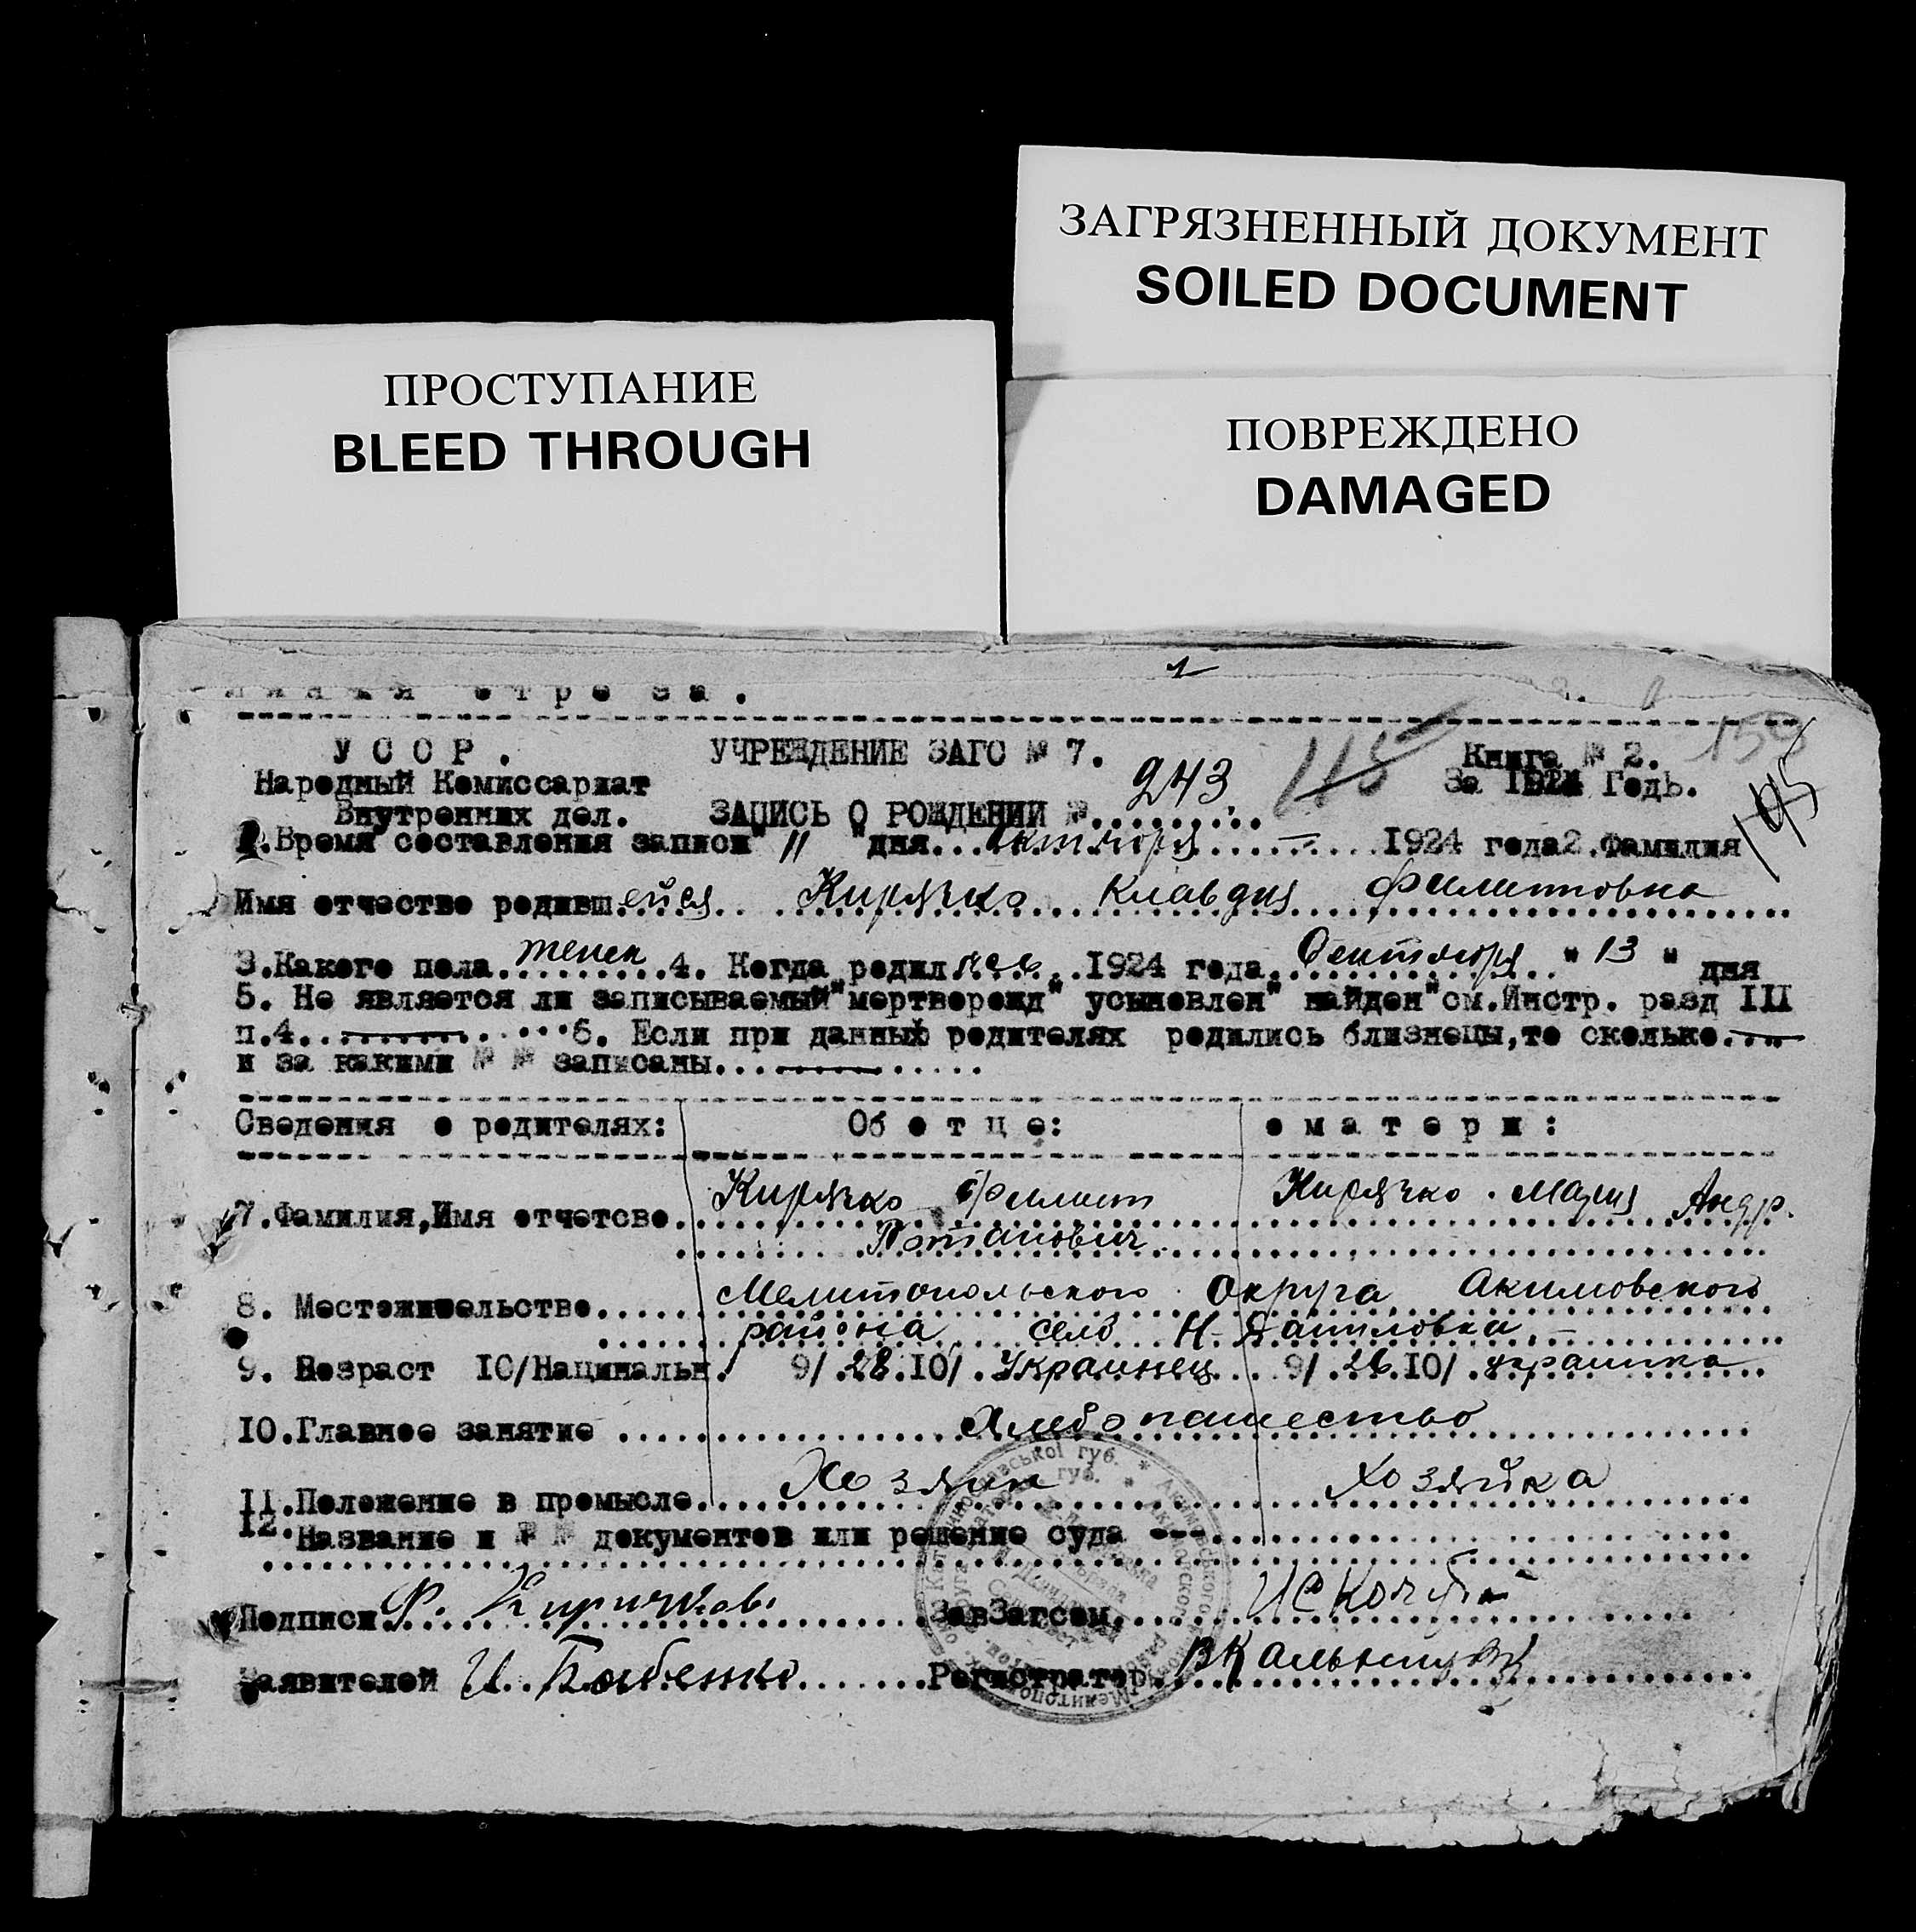 ЗАГРЯЗНЕННЫЙ ДОКУМЕНТ
SOILED DOCUMENT
ПРОСТУПАНИЕ
BLEED THROUGH
ПОВРЕЖДЕНО
DAMAGED
отреза.
УССР. УЧРЕЖДЕНИЕ ЗАГС № 7. Книга № 2. 150
115
Народный Комиссариат За 1924 Годъ.
Внутренних дел. ЗАПИСЬ О РОЖДЕНИИ № 243. 195
1.Время составления записи " 11 " дня... октября ... 1924 года 2.Фамилия
Имя отчество родившейся Кирячко Клавдия Филипповна
3.Какого пола. женск 4. Когда родилась 1924 года. Сентября " 13 " дня
5. Не является ли записываемый "мертворожд" усыновлен" найден"см.Инстр. разд III
п.4........6. Если при данных родителях родились близнецы,то сколько....
и за какими № № записаны...
Сведения о родителях: Об отце: о матери:
7.Фамилия,Имя отчетсво. Кирячко Филипп Кирячко Мария Андр.
Потапович
8. Местожительство... Мелитопольского Округа Акимовского
района село Н-Даниловка
9. Возраст 10/Нацинальн. 9/.28.10/.Украинец 9/.26.10/.украинка
10.Главное занятие ... Хлебопашество
11.Положение в промысле. Хозяин хозяйка
12.Название и № № документов или решение суда ---
Подписи Ф. Киричков ЗавЗагсом.
Заявителей И. Бабенко Регистратор.